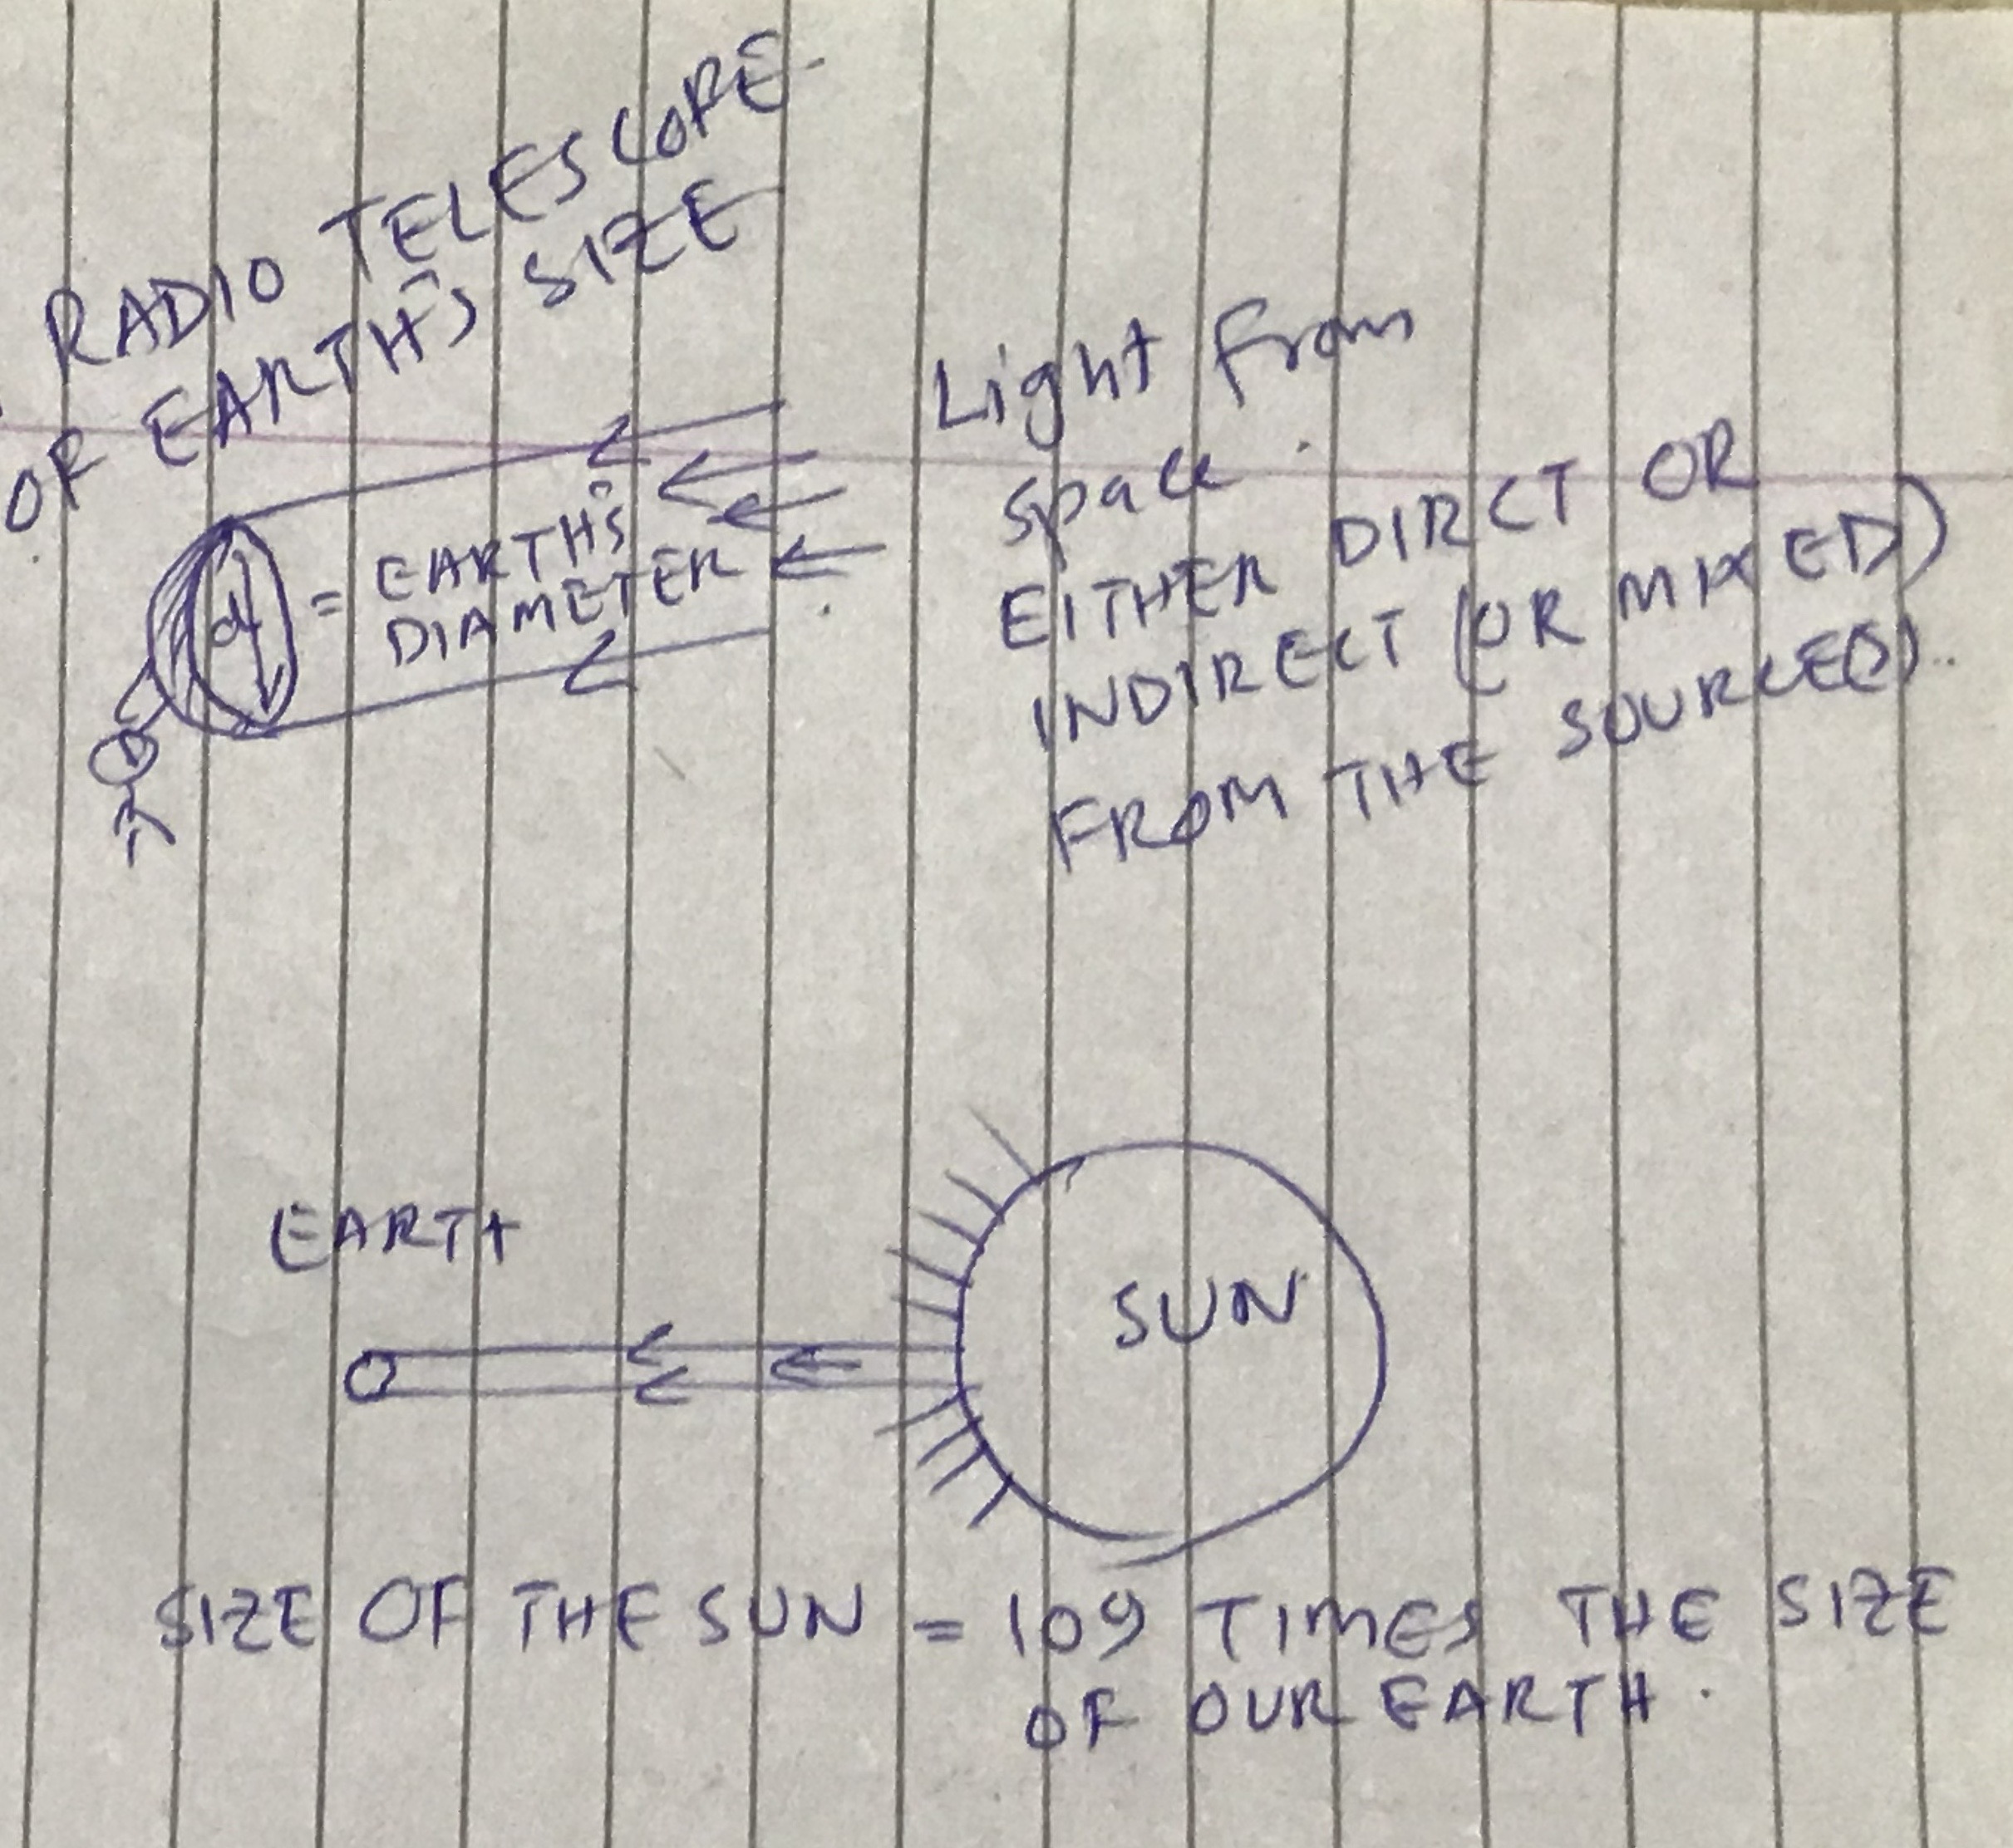 RADIO TELESCOPE
OF EARTH'S SIZE
Light from
space.
EITHER DIRCT OR
INDIRECT (OR MIXED)
FROM THE SOURCE(S).
d = EARTH'S
DIAMETER
EARTH
SUN
SIZE OF THE SUN = 109 TIMES THE SIZE
OF OUR EARTH.